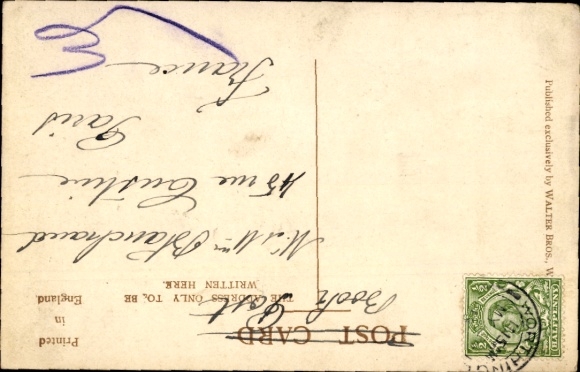 POST CARD
Book Post
THE ADDRESS ONLY TO BE
WRITTEN HERE
Printed
in
England
Blanchard
45 rue Custine
Paris
France
Published exclusively by WALTER BROS., W
HALFPENNY
WORTHING